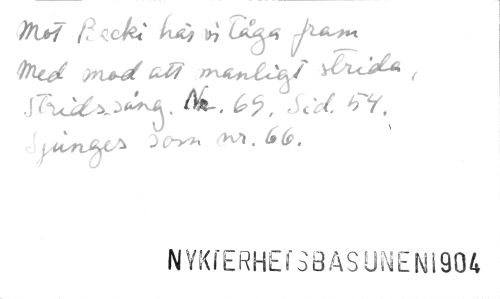 Mot Backi här vi tåga fram
Med mod att manligt strida,
Stridssång. Nr. 69. Sid. 54.
Sjunges som nr. 66.
NYKTERHETSBASUNEN1904